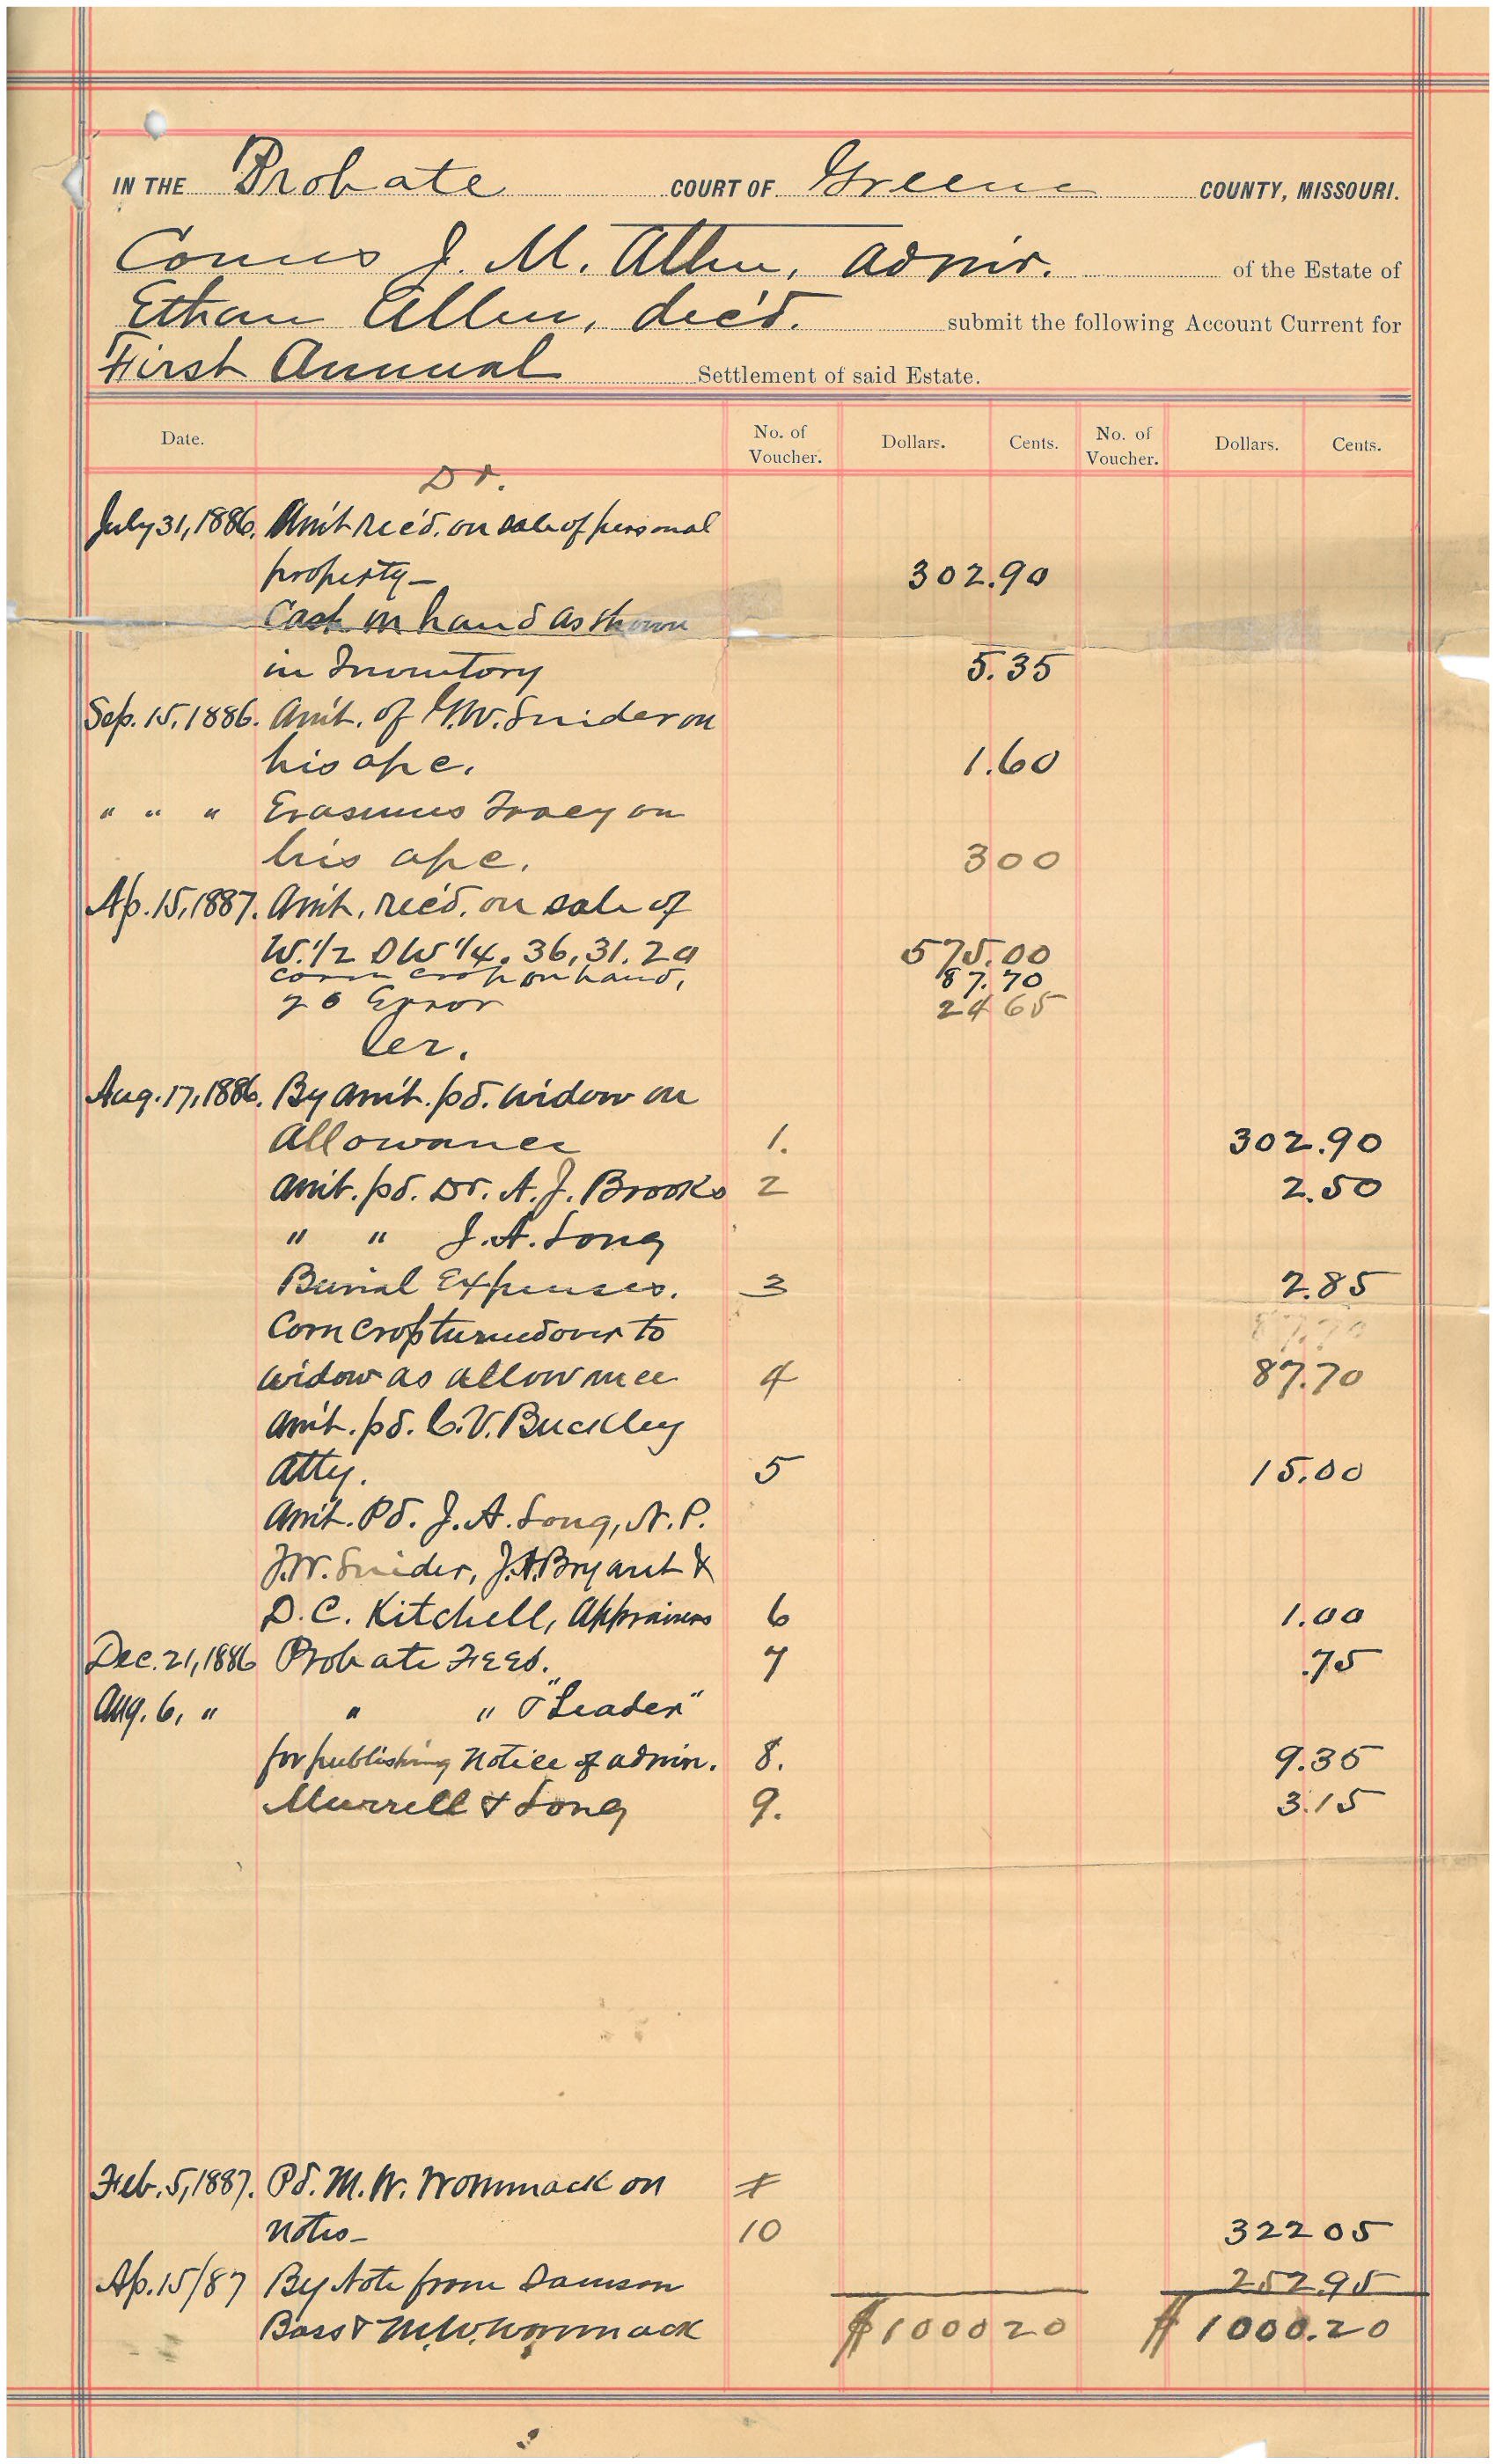 IN THE Probate COURT OF Greene COUNTY, MISSOURI.
Comes J. M. Allen, Admr. of the Estate of
Ethan Allen, dec'd. submit the following Account Current for
First Annual Settlement of said Estate.
Date. No. of Voucher. Dollars. Cents. No. of Voucher. Dollars. Cents.
Dr.
July 31, 1886. Am't rec'd. on sale of personal
property— 302.90
Cash on hand as shown
in Inventory 5.35
Sep. 15, 1886. Am't. of G.W. Snider on
his a/c. 1.60
" " " Erasmus on
his a/c. 300
Ap. 15, 1887. Am't. rec'd. on sale of
W. 1/2 SW 1/4. 36, 31. 2a 575.00
corn crop on hand, 87.70
To Error 24 65
Cr.
Aug. 17, 1886. By am't. pd. widow on
Allowance 1. 302.90
Am't. pd. Dr. A. J. Brooks 2 2.50
" " J. A. Long
Burial Expenses. 3 2.85
Corn crop turned over to 87.70
widow as allowance 4 87.70
Am't. pd. C. V. Buckley
Atty. 5 15.00
Am't. Pd. J. A. Long, N. P.
J.W. Snider, J.A. Bryant &
D. C. Kitchell, Appraisers 6 1.00
Dec. 21, 1886 Probate Fees. 7 .75
Aug. 6, " " " & "Leader"
for publishing Notice of admin. 8. 9.35
Murrell & Long 9. 3.15
Feb. 5, 1887. Pd. M. W. Wommack on
notes— 10 322 05
Ap. 15/87 By Note from Damson 252.95
Bass & M.W. Wommack $1000 20 $1000.20